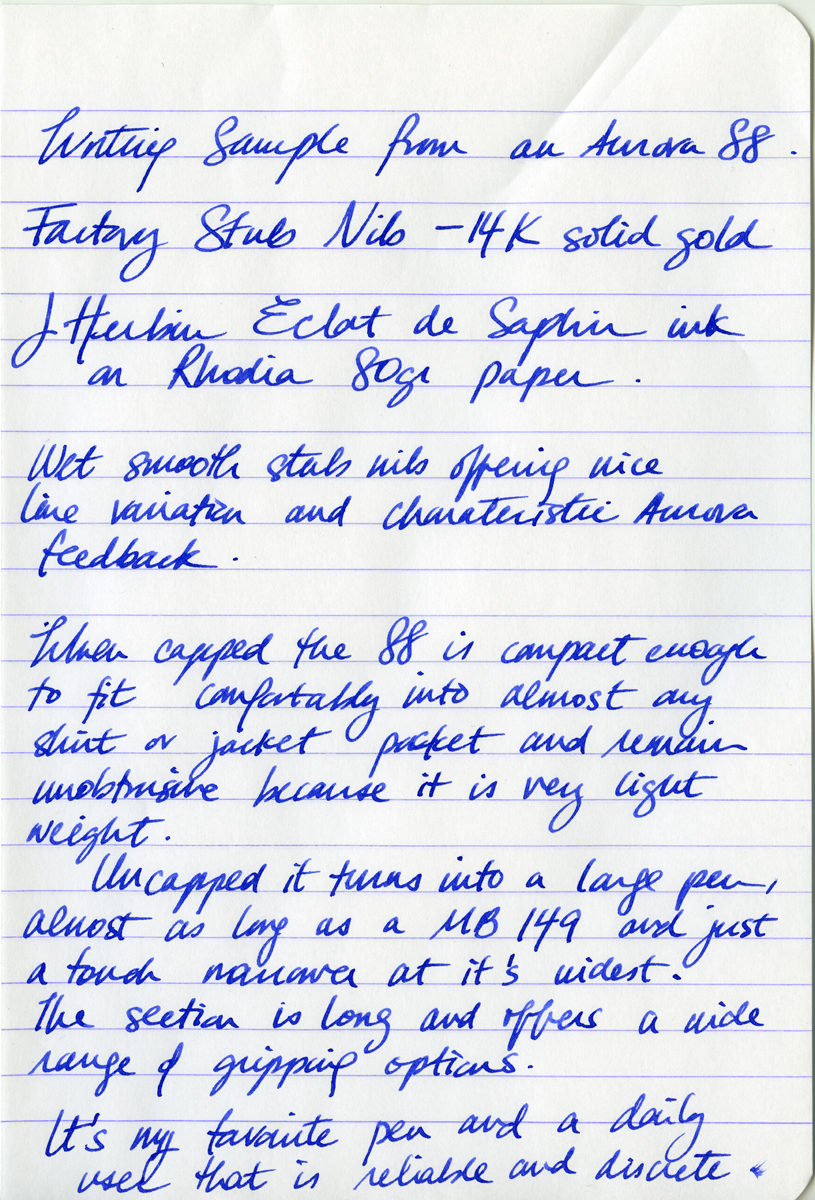 Writing Sample from an Aurora 88.
Factory Stub Nib - 14K solid gold
J Herbin Eclat de Saphir ink
on Rhodia 80gr paper.
Wet smooth stub nib offering nice
line variation and charateristic Aurora
feedback.
When capped the 88 is compact enough
to fit comfortably into almost any
shirt or jacket pocket and remain
unobtrusive because it is very light
weight.
Uncapped it turns into a large pen,
almost as long as a MB 149 and just
a touch narrower at it's widest.
The section is long and offers a wide
range of gripping options.
It's my favorite pen and a daily
user that is reliable and discrete.